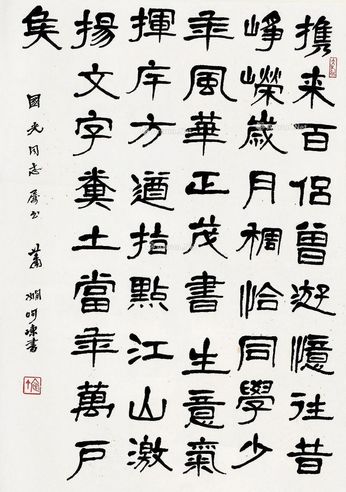 携来百侶曾遊憶往昔
崢嶸歲月稠恰同學少
年風華正茂書生意氣
揮斥方遒指點江山激
揚文字糞土當年萬户
侯
國光同志属书 蕭嫻呵凍書